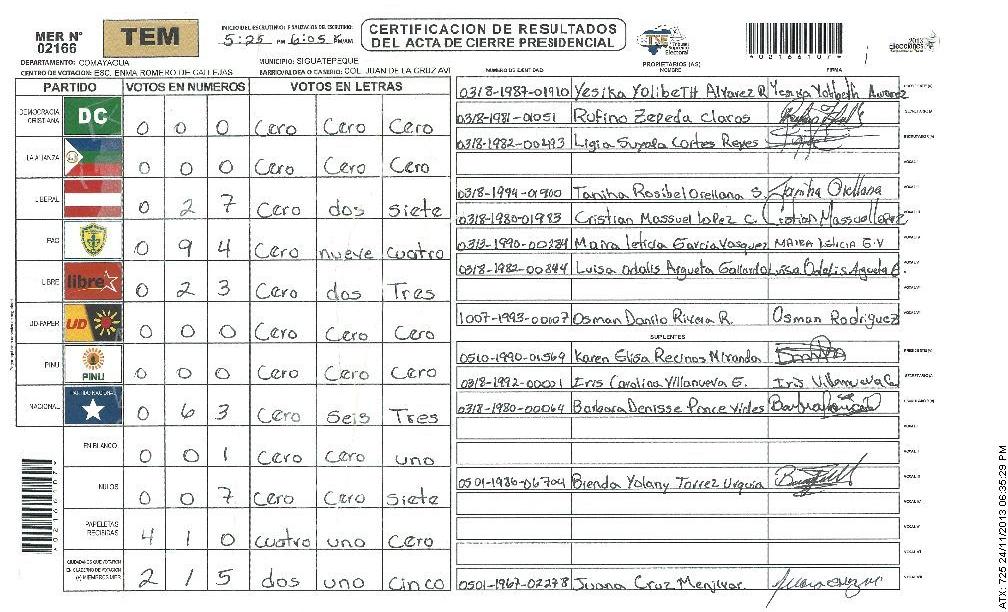 MER N° 02166
TEM
INICIO DEL ESCRUTINIO: FINALIZACION DEL ESCRUTINIO:
5:25 PM 6:05 PM/AM
CERTIFICACION DE RESULTADOS
DEL ACTA DE CIERRE PRESIDENCIAL
TSE Tribunal Supremo Electoral
2013 elecciones
DEPARTAMENTO: COMAYAGUA MUNICIPIO: SIGUATEPEQUE
CENTRO DE VOTACION: ESC. ENMA ROMERO DE CALLEJAS BARRIO/ALDEA O CASERIO: COL. JUAN DE LA CRUZ AVI
PARTIDO VOTOS EN NUMEROS VOTOS EN LETRAS
DEMOCRACIA CRISTIANA DC 0 0 0 Cero Cero Cero
LA ALIANZA 0 0 0 Cero Cero Cero
LIBERAL 0 2 7 Cero dos siete
PAC 0 9 4 Cero nueve cuatro
LIBRE libre 0 2 3 Cero dos Tres
UD-FAPER UD 0 0 0 Cero Cero Cero
PINU PINU 0 0 0 Cero Cero Cero
NACIONAL 0 6 3 Cero Seis Tres
EN BLANCO 0 0 1 Cero Cero uno
NULOS 0 0 7 Cero Cero Siete
PAPELETAS RECIBIDAS 4 1 0 cuatro uno Cero
CIUDADANOS QUE VOTARON EN CUADERNO DE VOTACION (+) MIEMBROS MER 2 1 5 dos uno Cinco
NUMERO DE IDENTIDAD PROPIETARIOS (AS) NOMBRE FIRMA
0318-1987-01910 Yesika Yolibeth Alvarez R. Yesika Yolibeth Alvarez
0318-1981-01051 Rufino Zepeda Claros
0318-1982-00293 Ligia Suyapa Cortes Reyes
0318-1994-01900 Tanitha Rosibel Orellana S. Tanitha Orellana
0318-1980-01983 Cristian Massuel Lopez C. Cristian Massuel Lopez
0313-1990-00284 Maira Leticia Garcia Vasquez MAIRA Leticia G.V
0318-1982-00844 Luisa Odalis Argueta Gallardo Luisa Odalis Argueta G.
1007-1993-00107 Osman Danilo Rivera R. Osman Rodriguez
SUPLENTES
0510-1990-01569 Karen Elisa Recinos Miranda
0318-1992-00021 Iris Carolina Villanueva E. Iris Villanueva
0318-1980-00064 Barbara Denisse Ponce Virles
0501-1986-06704 Brenda Yolany Torrez Urquia
0501-1967-02278 Juana Cruz Menjivar.
ATX-725 24/11/2013 06:35:29 PM